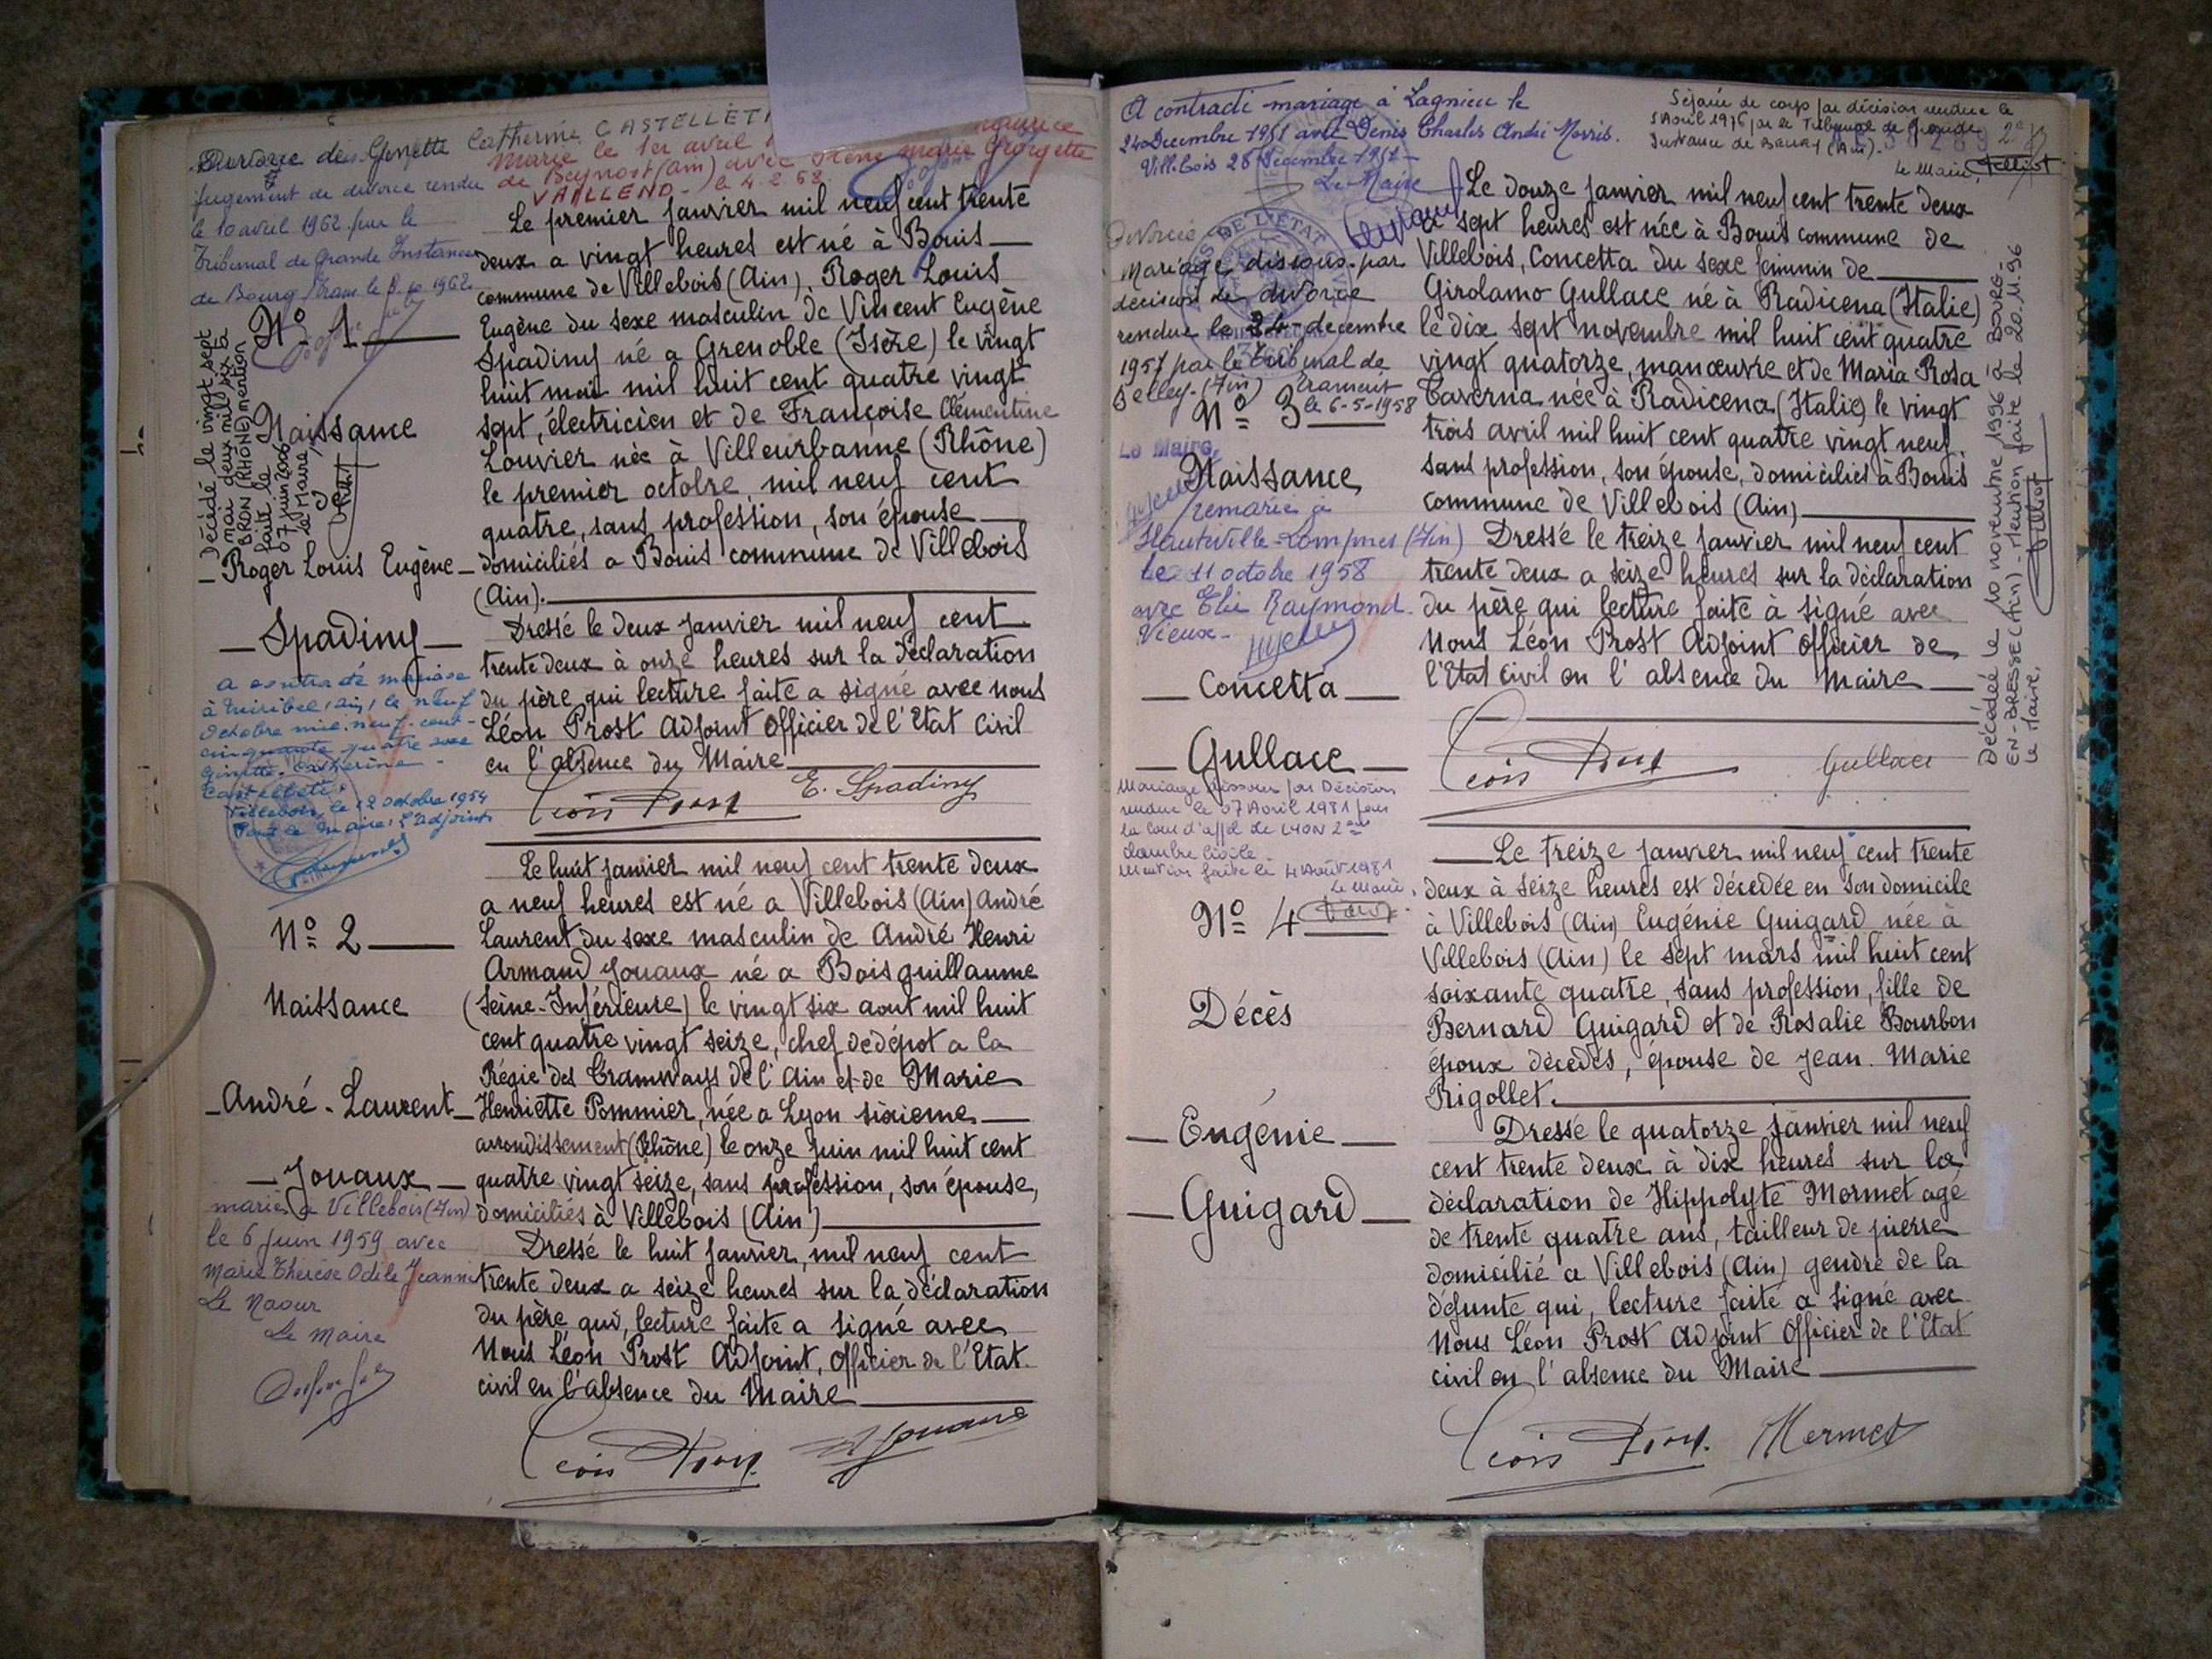 Divorcé de Ginette Catherine CASTELLETI
jugement de divorce rendu
le 10 avril 1962 par le
Tribunal de Grande Instance
de Bourg
Marié le 1er avril
de Beynost (Ain) avec Irène Marie Georgette
VAILLEND - le 4.2.68.
N° 1
Naissance
Décédé le vingt sept
mai deux mil six à
BRON (RHÔNE) mention
faite le
07 juin 2006
le Maire,
Roger Louis Eugène
Spadiny
a contracté mariage
à Miribel (Ain) le neuf
octobre mil neuf cent
cinquante quatre avec
Ginette Catherine
Castelleti
Villebois, le 12 octobre 1954
Pour le Maire: l'Adjoint
Le premier janvier mil neuf cent trente
deux a vingt heures est né à Bouis
commune de Villebois (Ain), Roger Louis
Eugène du sexe masculin de Vincent Eugène
Spadiny né a Grenoble (Isère) le vingt
huit mai mil huit cent quatre vingt
sept, électricien et de Françoise Clémentine
Louvier née à Villeurbanne (Rhône)
le premier octobre mil neuf cent
quatre, sans profession, son épouse
domiciliés a Bouis commune de Villebois
(Ain).
Dressé le deux janvier mil neuf cent
trente deux à onze heures sur la déclaration
du père qui lecture faite a signé avec nous
Léon Prost Adjoint Officier de l'Etat Civil
en l'absence du Maire
Léon Prost E. Spadiny
N° 2
Naissance
André-Laurent
Jouaux
marié à Villebois (Ain)
le 6 juin 1959 avec
Marie Thérèse Odile Jeanne
Le Naour
Le Maire
Le huit janvier mil neuf cent trente deux
a neuf heures est né a Villebois (Ain) André
Laurent du sexe masculin de André Henri
Armand Jouaux né a Bois guillaume
(Seine-Inférieure) le vingt six aout mil huit
cent quatre vingt seize, chef de dépot a la
Régie des Tramways de l'Ain et de Marie
Henriette Pommier, née a Lyon sixieme
arrondissement (Rhône) le onze juin mil huit cent
quatre vingt seize, sans profession, son épouse,
domiciliés à Villebois (Ain)
Dressé le huit janvier, mil neuf cent
trente deux a seize heures sur la déclaration
du père qui, lecture faite a signé avec
Nous Léon Prost Adjoint, Officier de l'Etat
civil en l'absence du Maire
Léon Prost Jouaux
A contracté mariage à Lagnieu le
24 Decembre 1951 avec Denis Charles André
Villebois 28 Decembre 1951
Le Maire
Séparée de corps par décision rendue le
5 Avril 1976 par le Tribunal de Grande
Instance de BOURG (Ain).
Le Maire,
Divorcée
Mariage dissous par
décision de divorce
rendue le 24 decembre
1957 par le Tribunal de
Belley (Ain)
le 6-5-1958
N° 3
Le Maire,
Naissance
remariée à
Hauteville-Lompnes (Ain)
le 11 octobre 1958
avec Elie Raymond
Vieux-
Concetta
Gullace
Mariage dissous par Décision
rendue le 07 Avril 1981 par
la Cour d'appel de LYON 2ème
chambre Civile
Mention faite le 4 Août 1981
Le Maire,
Le douze janvier mil neuf cent trente deux
a sept heures est née à Bouis commune de
Villebois, Concetta du sexe féminin de
Girolamo Gullace né à Radicena (Italie)
le dix sept novembre mil huit cent quatre
vingt quatorze, manœuvre et de Maria Rosa
Taverna née à Radicena (Italie) le vingt
trois avril mil huit cent quatre vingt neuf
sans profession, son épouse, domiciliés à Bouis
commune de Villebois (Ain)
Dressé le treize janvier mil neuf cent
trente deux a seize heures sur la déclaration
du père qui lecture faite à signé avec
Nous Léon Prost Adjoint Officier de
l'Etat civil en l'absence du Maire
Léon Prost Gullace
Décédée le 10 novembre 1996 à BOURG-
EN-BRESSE (Ain) - Mention faite le 20.11.96
Le Maire,
N° 4
Décès
Eugénie
Guigard
Le treize janvier mil neuf cent trente
deux à seize heures est décédée en son domicile
à Villebois (Ain) Eugénie Guigard née à
Villebois (Ain) le sept mars mil huit cent
soixante quatre, sans profession, fille de
Bernard Guigard et de Rosalie Bourbon
époux décédés, épouse de Jean. Marie
Rigollet.
Dressé le quatorze janvier mil neuf
cent trente deux à dix heures sur la
déclaration de Hippolyte Mermet agé
de trente quatre ans, tailleur de pierre
domicilié a Villebois (Ain) gendre de la
défunte qui, lecture faite a signé avec
Nous Léon Prost Adjoint Officier de l'Etat
civil en l'absence du Maire
Léon Prost. Mermet